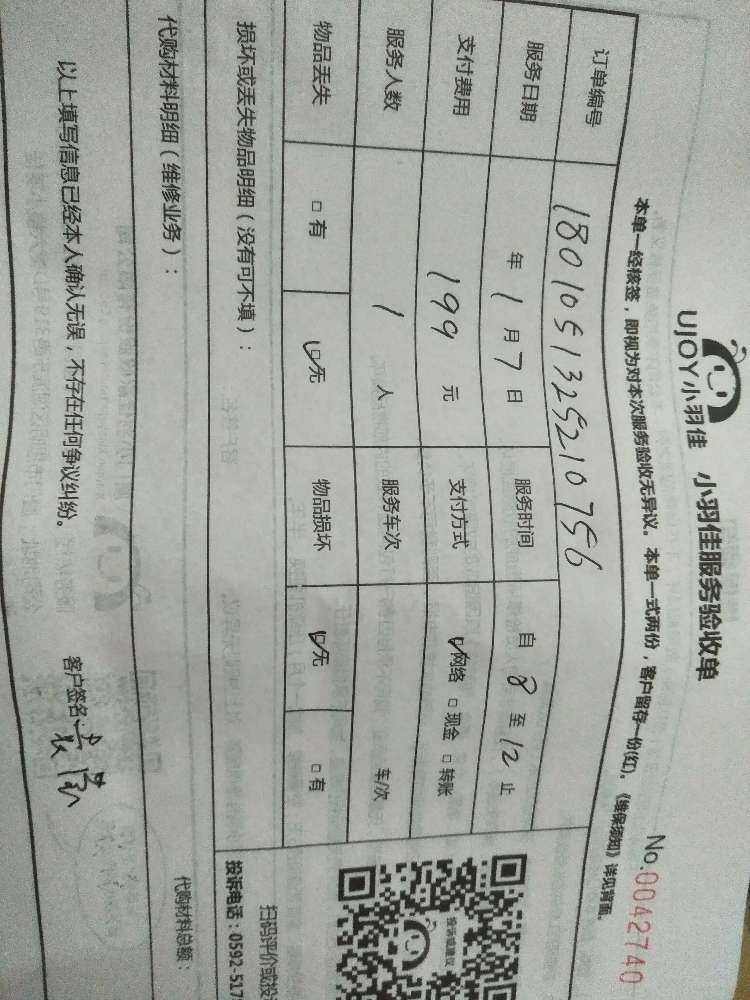 UJOY小羽佳 小羽佳服务验收单
No.0042740
本单一经核签，即视为对本次服务验收无异议。本单一式两份，客户留存一份(红)。《维保须知》详见背面。
订单编号 180105132529210756
服务日期 年 1 月 7 日 服务时间 自 8 至 12 止
支付费用 199 元 支付方式 ☑网络 □现金 □转账
服务人数 1 人 服务车次 车/次
物品丢失 □有 ☑无 物品损坏 ☑无 □有
损坏或丢失物品明细（没有可不填）：
投诉建议
扫码评价或投
投诉电话：0592-517
代购材料明细（维修业务）：
代购材料总额：
以上填写信息已经本人确认无误，不存在任何争议纠纷。 客户签名